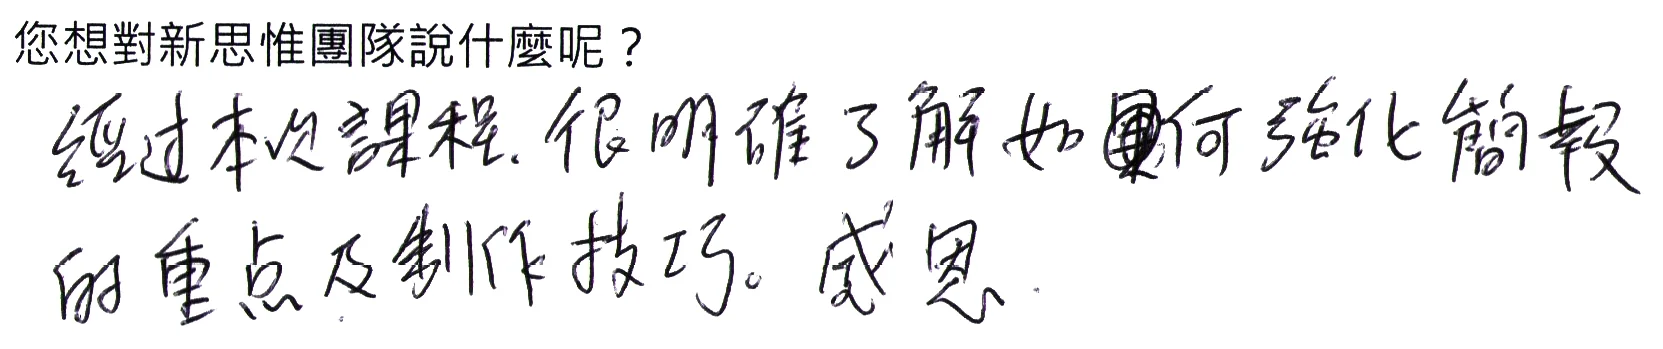 您想對新思惟團隊說什麼呢？
經过本次課程.很明確了解如何強化簡報
的重点及制作技巧。感恩.